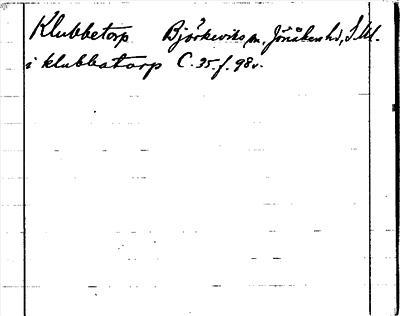 Klubbetorp Björkeviks sn, Jönåkers hd, S.M.
i klubbatorp C. 35. f. 98v.